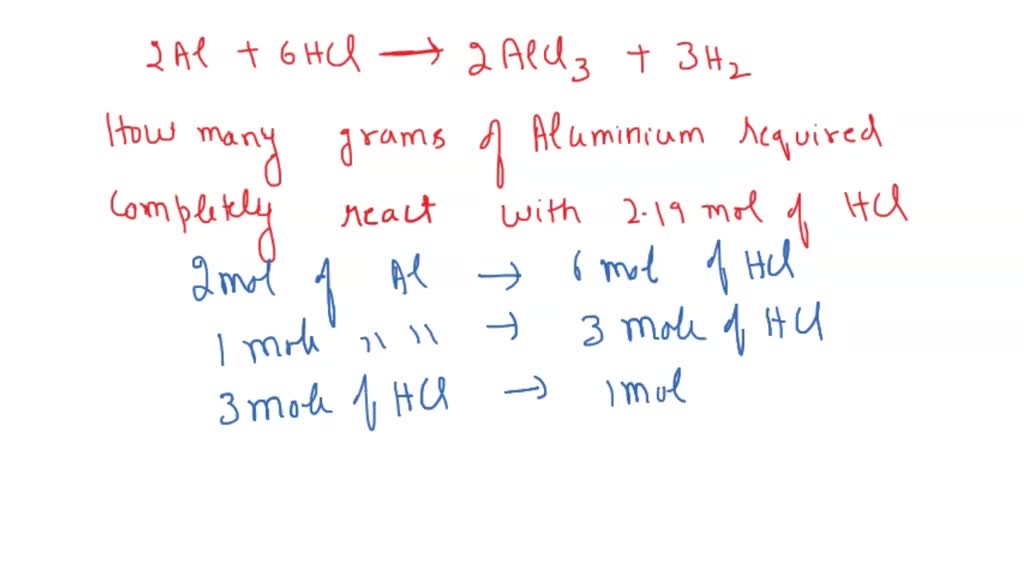 2Al + 6HCl → 2AlCl3 + 3H2
How many grams of Aluminium required
Completely react with 2.19 mol of HCl
2mol of Al → 6 mol of HCl
1 mole " " → 3 mole of HCl
3 mole of HCl → 1mol